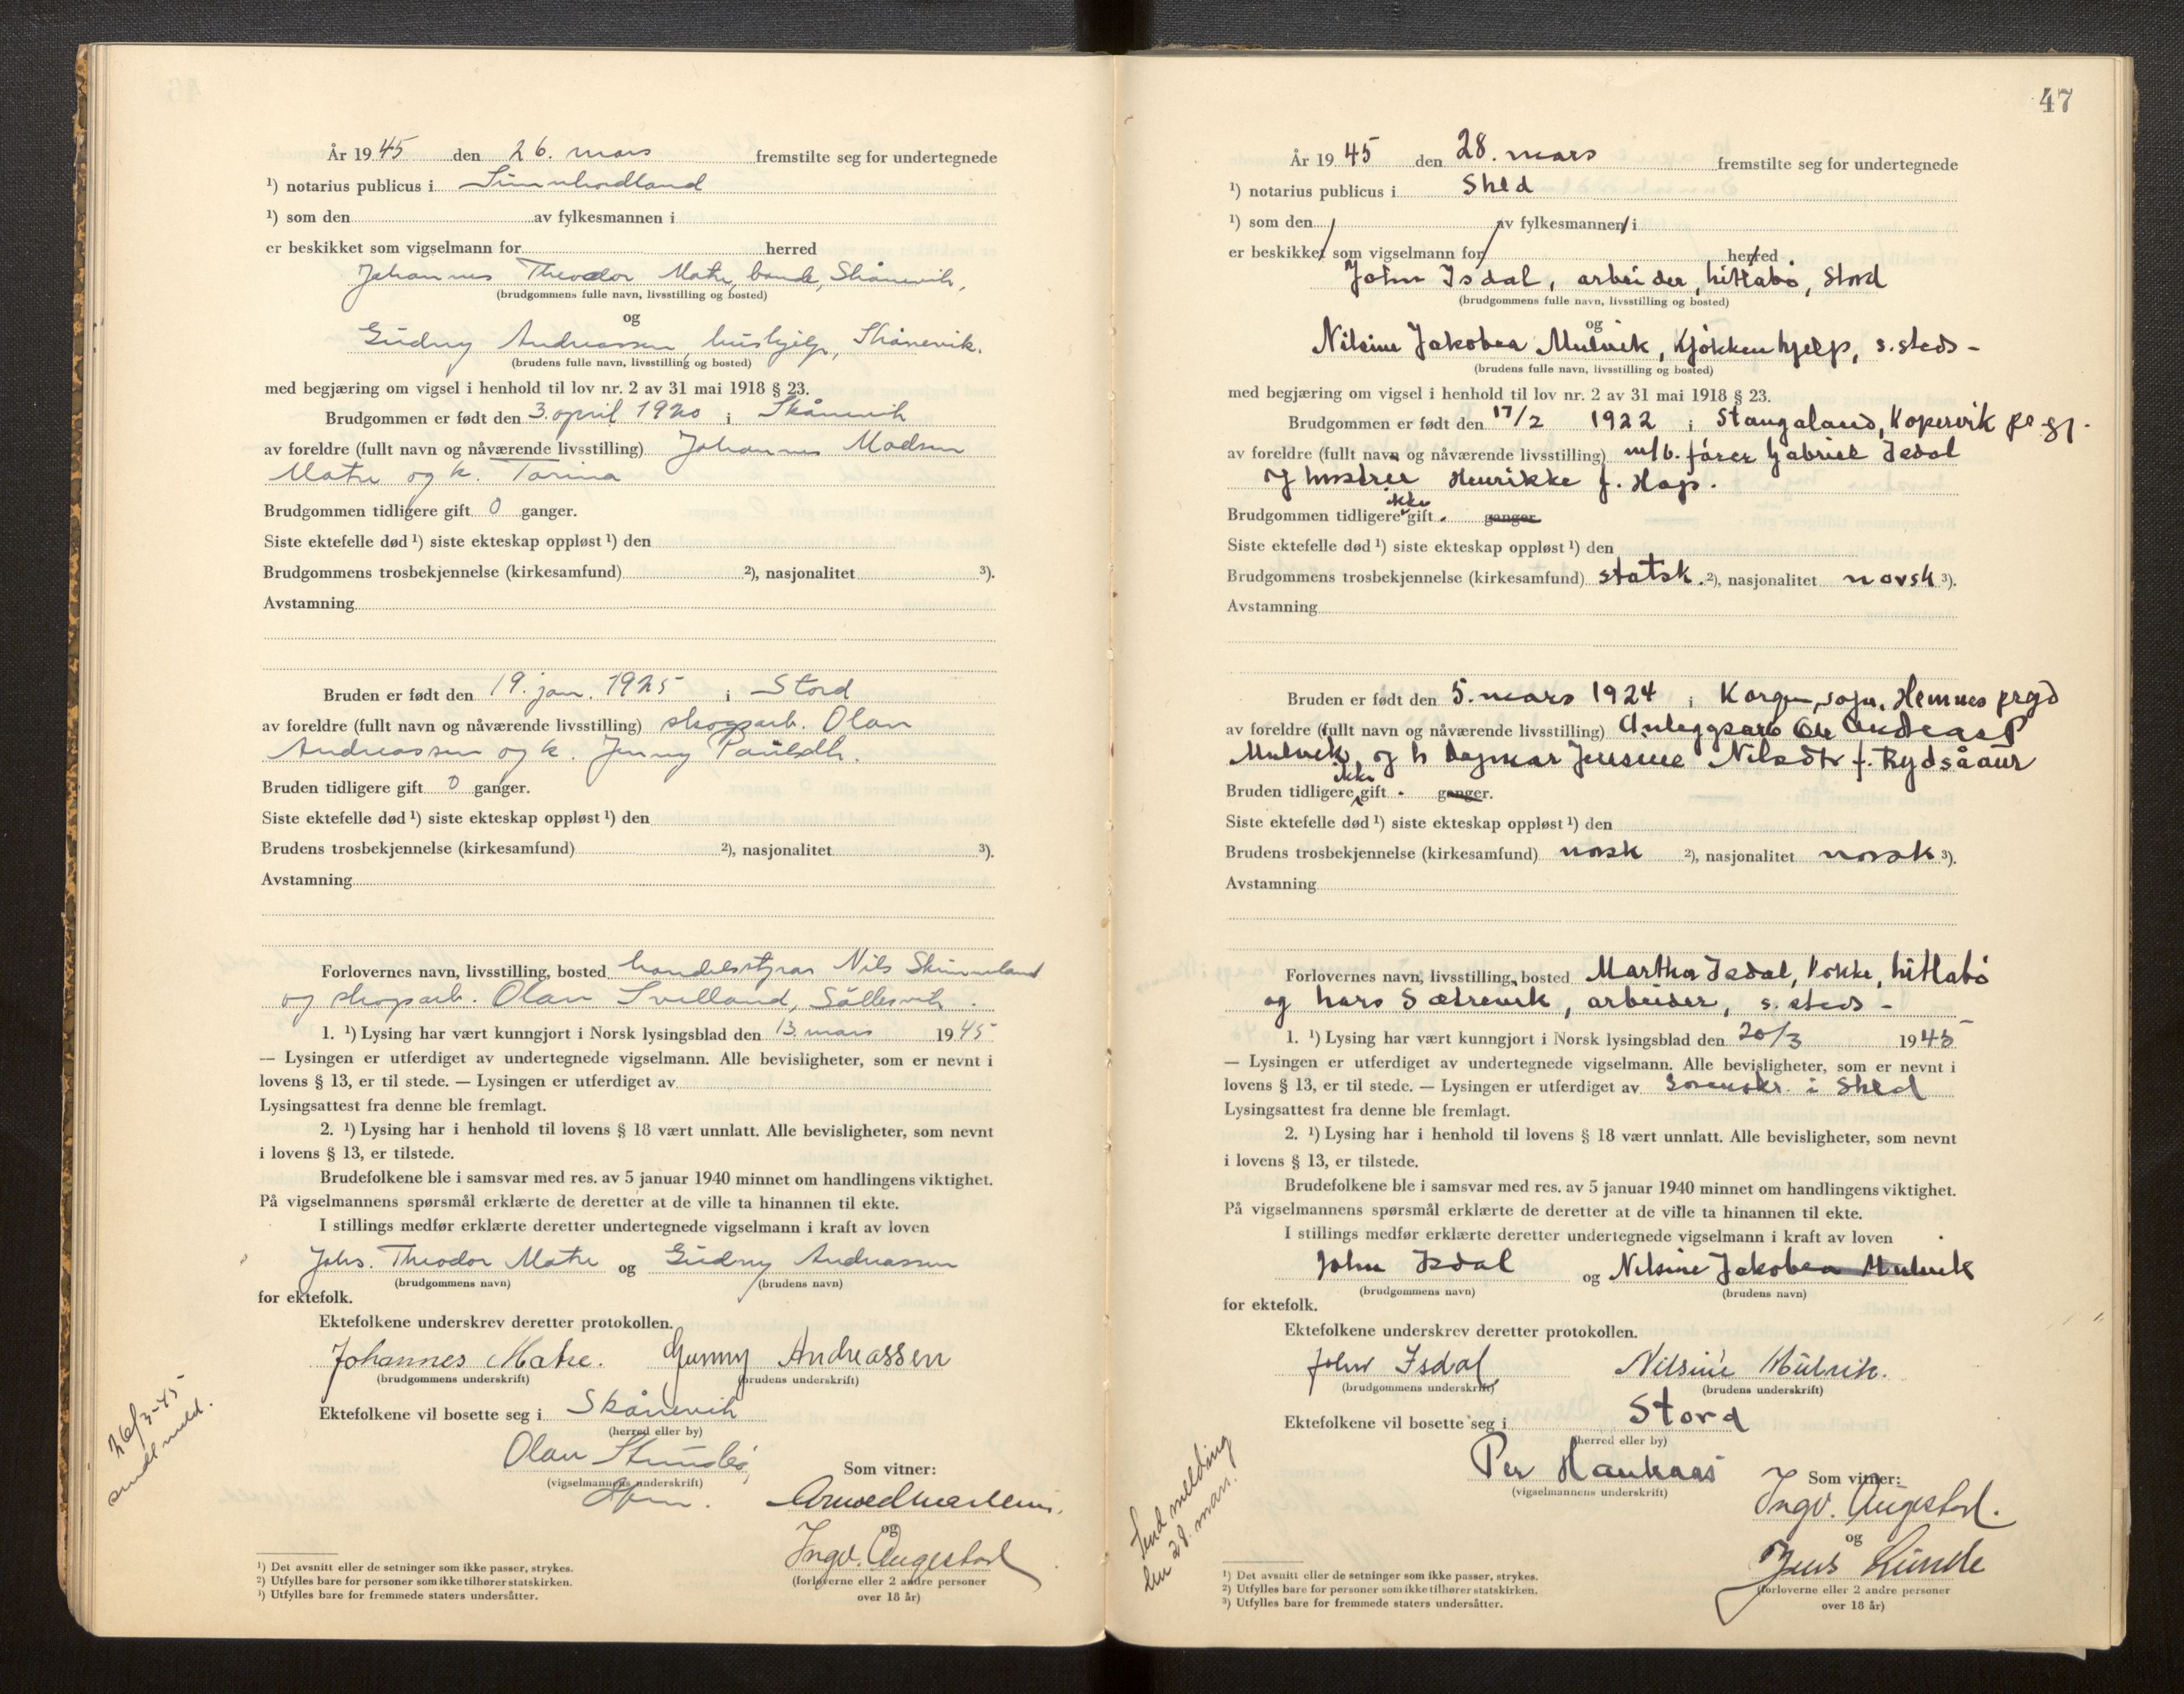 År 1945 den 26. mars fremstilte seg for undertegnede
¹) notarius publicus i Sunnhordland
¹) som den av fylkesmannen i
er beskikket som vigselmann for herred
Johannes Theodor Matre, bonde, Skånevik,
(brudgommens fulle navn, livsstilling og bosted)
og
Gudny Andreassen, hushjelp, Skånevik.
(brudens fulle navn, livsstilling og bosted)
med begjæring om vigsel i henhold til lov nr. 2 av 31 mai 1918 § 23.
Brudgommen er født den 3. april 1920 i Skånevik
av foreldre (fullt navn og nåværende livsstilling) Johannes Madsen
Matre og k. Torina
Brudgommen tidligere gift 0 ganger.
Siste ektefelle død ¹) siste ekteskap oppløst ¹) den
Brudgommens trosbekjennelse (kirkesamfund) ²), nasjonalitet ³).
Avstamning
Bruden er født den 19. jan. 1925 i Stord
av foreldre (fullt navn og nåværende livsstilling) skogsarb. Olav
Andreassen og k. Jenny Paulsdtr.
Bruden tidligere gift 0 ganger.
Siste ektefelle død ¹) siste ekteskap oppløst ¹) den
Brudens trosbekjennelse (kirkesamfund) ²), nasjonalitet ³).
Avstamning
Forlovernes navn, livsstilling, bosted handelsstyrar Nils
og skogarb. Olav
1. ¹) Lysing har vært kunngjort i Norsk lysingsblad den 13. mars 1945
— Lysingen er utferdiget av undertegnede vigselmann. Alle bevisligheter, som er nevnt i
lovens § 13, er til stede. — Lysingen er utferdiget av
Lysingsattest fra denne ble fremlagt.
2. ¹) Lysing har i henhold til lovens § 18 vært unnlatt. Alle bevisligheter, som nevnt
i lovens § 13, er tilstede.
Brudefolkene ble i samsvar med res. av 5 januar 1940 minnet om handlingens viktighet.
På vigselmannens spørsmål erklærte de deretter at de ville ta hinannen til ekte.
I stillings medfør erklærte deretter undertegnede vigselmann i kraft av loven
Johs. Theodor Matre og Gudny Andreassen
(brudgommens navn) (brudens navn)
for ektefolk.
Ektefolkene underskrev deretter protokollen.
Johannes Matre. Gunny Andreassen
(brudgommens underskrift) (brudens underskrift)
Ektefolkene vil bosette seg i Skånevik
(herred eller by)
Olav
(vigselmannens underskrift)
Som vitner:
og
Ingv. Augestad
(forloverne eller 2 andre personer
over 18 år)
26/3-45
sendt meld.
¹) Det avsnitt eller de setninger som ikke passer, strykes.
²) Utfylles bare for personer som ikke tilhører statskirken.
³) Utfylles bare for fremmede staters undersåtter.
47
År 1945 den 28. mars fremstilte seg for undertegnede
¹) notarius publicus i Shld
¹) som den av fylkesmannen i
er beskikket som vigselmann for herred
John Isdal, arbeider, Litlabø, Stord
(brudgommens fulle navn, livsstilling og bosted)
og
Nilsine Jakobea Mulvik, Kjøkkenhjelp, s. steds -
(brudens fulle navn, livsstilling og bosted)
med begjæring om vigsel i henhold til lov nr. 2 av 31 mai 1918 § 23.
Brudgommen er født den 17/2 1922 i Stangaland, Kopervik pr.gj.
av foreldre (fullt navn og nåværende livsstilling) m/b. fører Gabriel Isdal
og hustru Henrikke f. Hop.
Brudgommen tidligere ikke gift. ganger
Siste ektefelle død ¹) siste ekteskap oppløst ¹) den
Brudgommens trosbekjennelse (kirkesamfund) statsk. ²), nasjonalitet norsk ³).
Avstamning
Bruden er født den 5. mars 1924 i Korgen, sogn, Hemnes prgd
av foreldre (fullt navn og nåværende livsstilling) Anleggsarb Ole Andreas P
Mulvik, og h Dagmar Jensine Nilsdtr f. Rydsåaur
Bruden tidligere ikke gift - ganger.
Siste ektefelle død ¹) siste ekteskap oppløst ¹) den
Brudens trosbekjennelse (kirkesamfund) norsk ²), nasjonalitet norsk ³).
Avstamning
Forlovernes navn, livsstilling, bosted Martha Isdal, kokke, Litlabø
og Lars Sætrevik, arbeider, s. steds -
1. ¹) Lysing har vært kunngjort i Norsk lysingsblad den 20/3 1945
— Lysingen er utferdiget av undertegnede vigselmann. Alle bevisligheter, som er nevnt i
lovens § 13, er til stede. — Lysingen er utferdiget av Sorenskr. i Shld
Lysingsattest fra denne ble fremlagt.
2. ¹) Lysing har i henhold til lovens § 18 vært unnlatt. Alle bevisligheter, som nevnt
i lovens § 13, er tilstede.
Brudefolkene ble i samsvar med res. av 5 januar 1940 minnet om handlingens viktighet.
På vigselmannens spørsmål erklærte de deretter at de ville ta hinannen til ekte.
I stillings medfør erklærte deretter undertegnede vigselmann i kraft av loven
John Isdal og Nilsine Jakobea Mulvik
(brudgommens navn) (brudens navn)
for ektefolk.
Ektefolkene underskrev deretter protokollen.
John Isdal Nilsine Mulvik.
(brudgommens underskrift) (brudens underskrift)
Ektefolkene vil bosette seg i Stord
(herred eller by)
Per Haukaas
(vigselmannens underskrift)
Som vitner:
Ingv. Augestad.
og
Jens Lunde
(forloverne eller 2 andre personer
over 18 år)
Send melding
den 28. mars.
¹) Det avsnitt eller de setninger som ikke passer, strykes.
²) Utfylles bare for personer som ikke tilhører statskirken.
³) Utfylles bare for fremmede staters undersåtter.